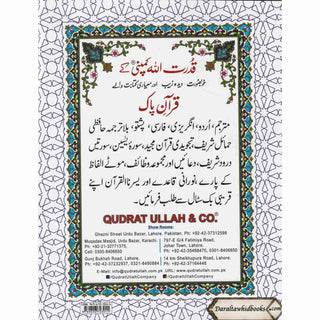 قدرت اللہ کمپنی کے
خوبصورت دیدہ زیب اور معیاری کتابت والے
قرآن پاک
مترجم، اُردو، انگریزی، فارسی، پشتو، بلا ترجمہ حافظی
حمائل شریف، تجویدی قرآن مجید، سورۃ یٰسین، سورتیں
درود شریف، دعائیں اور مجموعہ وظائف، موٹے الفاظ
کے پارے، نورانی قاعدے اور یسرنا القرآن اپنے
قریبی بک سٹال سے طلب فرمائیں۔
QUDRAT ULLAH & CO.
Show Rooms:
Ghazni Street Urdu Bazar, Lahore, Pakistan. Ph: +92-42-37312598
Muqadas Masjid, Urdu Bazar, Karachi.
Ph: +92-21-32771375,
Cell: 0305-8406650
797-E G/4 Fatimiya Road,
Johar Town, Lahore.
Ph: +92-42-35468470, 0301-8406650
Gunj Bukhsh Road, Lahore.
Ph: +92-42-37232937, 0321-8490884
14 km Sheikhupura Road, Lahore.
Ph: +92-42-37164448
E-Mail: info@qudratullah.com.pk
www.qudratullah.com.pk
/QudratUllahCompany
/QudratUllahCompany
Daraltawhidbooks.com/